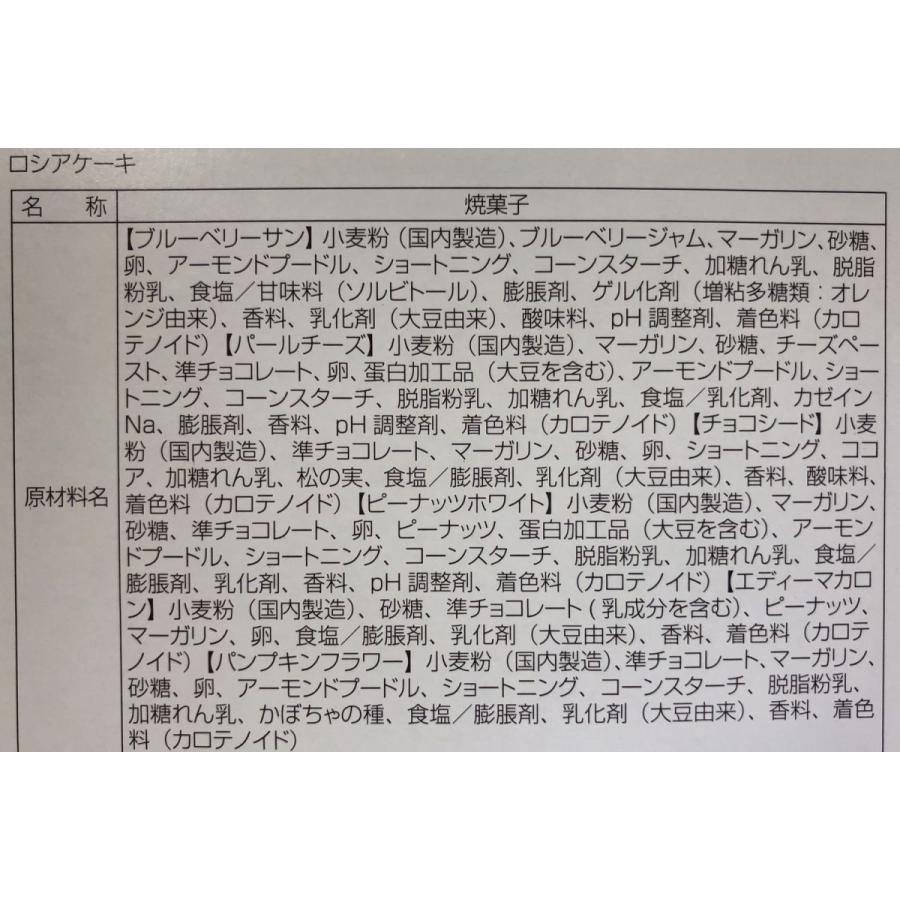 ロシアケーキ
名　称　焼菓子
原材料名
【ブルーベリーサン】小麦粉（国内製造）、ブルーベリージャム、マーガリン、砂糖、
卵、アーモンドプードル、ショートニング、コーンスターチ、加糖れん乳、脱脂
粉乳、食塩／甘味料（ソルビトール）、膨脹剤、ゲル化剤（増粘多糖類：オレ
ンジ由来）、香料、乳化剤（大豆由来）、酸味料、pH調整剤、着色料（カロ
テノイド）【パールチーズ】小麦粉（国内製造）、マーガリン、砂糖、チーズペー
スト、準チョコレート、卵、蛋白加工品（大豆を含む）、アーモンドプードル、ショー
トニング、コーンスターチ、脱脂粉乳、加糖れん乳、食塩／乳化剤、カゼイン
Na、膨脹剤、香料、pH調整剤、着色料（カロテノイド）【チョコシード】小麦
粉（国内製造）、準チョコレート、マーガリン、砂糖、卵、ショートニング、ココ
ア、加糖れん乳、松の実、食塩／膨脹剤、乳化剤（大豆由来）、香料、酸味料、
着色料（カロテノイド）【ピーナッツホワイト】小麦粉（国内製造）、マーガリン、
砂糖、準チョコレート、卵、ピーナッツ、蛋白加工品（大豆を含む）、アーモン
ドプードル、ショートニング、コーンスターチ、脱脂粉乳、加糖れん乳、食塩／
膨脹剤、乳化剤、香料、pH調整剤、着色料（カロテノイド）【エディーマカロ
ン】小麦粉（国内製造）、砂糖、準チョコレート(乳成分を含む)、ピーナッツ、
マーガリン、卵、食塩／膨脹剤、乳化剤（大豆由来）、香料、着色料（カロテ
ノイド）【パンプキンフラワー】小麦粉（国内製造）、準チョコレート、マーガリン、
砂糖、卵、アーモンドプードル、ショートニング、コーンスターチ、脱脂粉乳、
加糖れん乳、かぼちゃの種、食塩／膨脹剤、乳化剤（大豆由来）、香料、着色
料（カロテノイド）